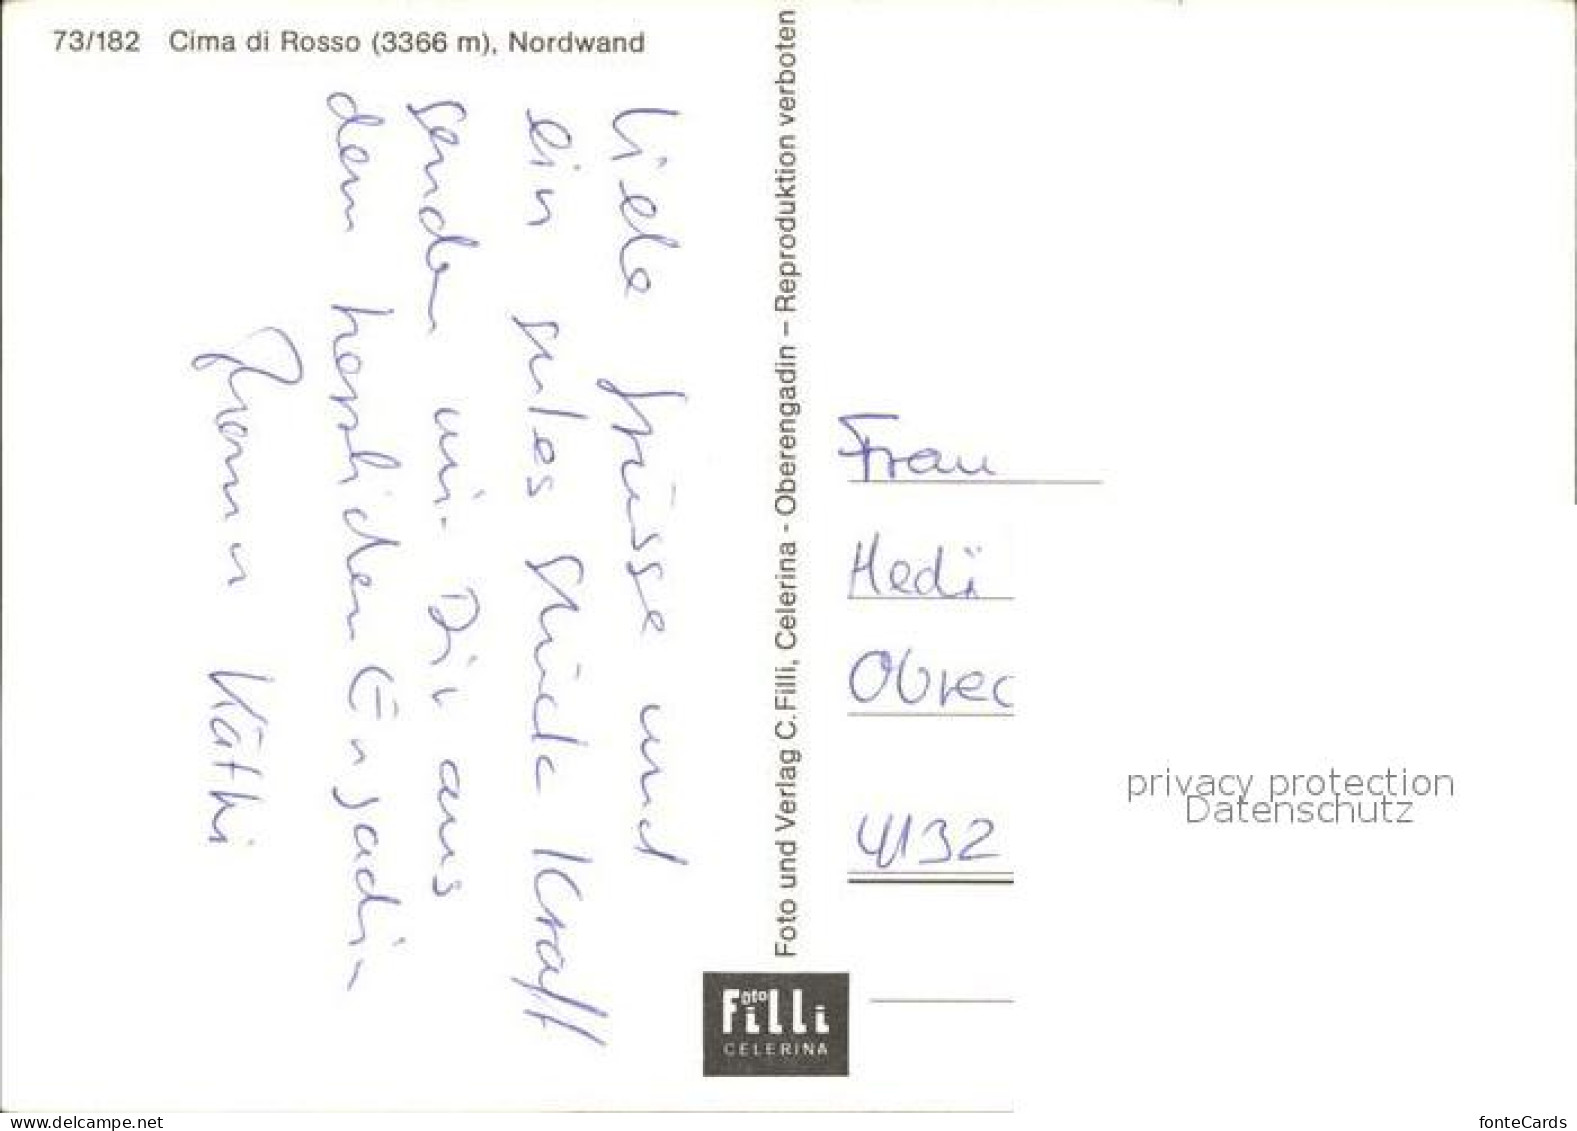 73/182 Cima di Rosso (3366 m), Nordwand
Liebe Grüsse und
ein gutes Stück Kraft
senden wir Dir aus
dem herrlichen Engadin
Käthi
Foto und Verlag C. Filli, Celerina - Oberengadin – Reproduktion verboten
Frau
Hedi
Obrec
4132
Foto Filli
CELERINA
privacy protection
Datenschutz
www.delcampe.net
fonteCards